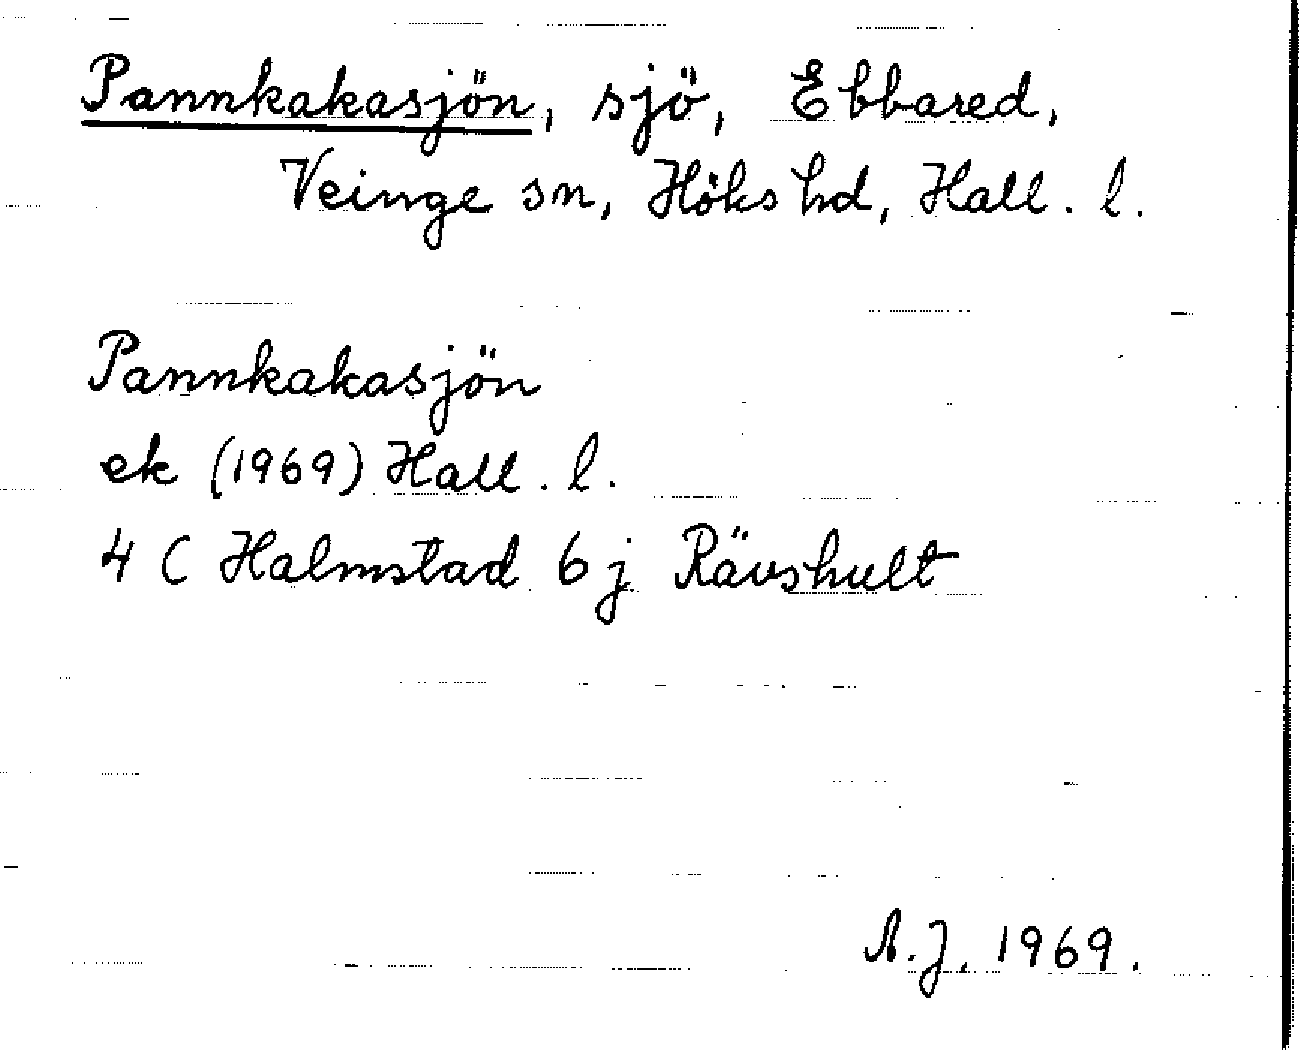 Pannkakasjön, sjö, Ebbared,
Veinge sn, Höks hd, Hall. l.
Pannkakasjön
ek (1969) Hall. l.
4 C Halmstad 6 j Rävshult
A.J. 1969.